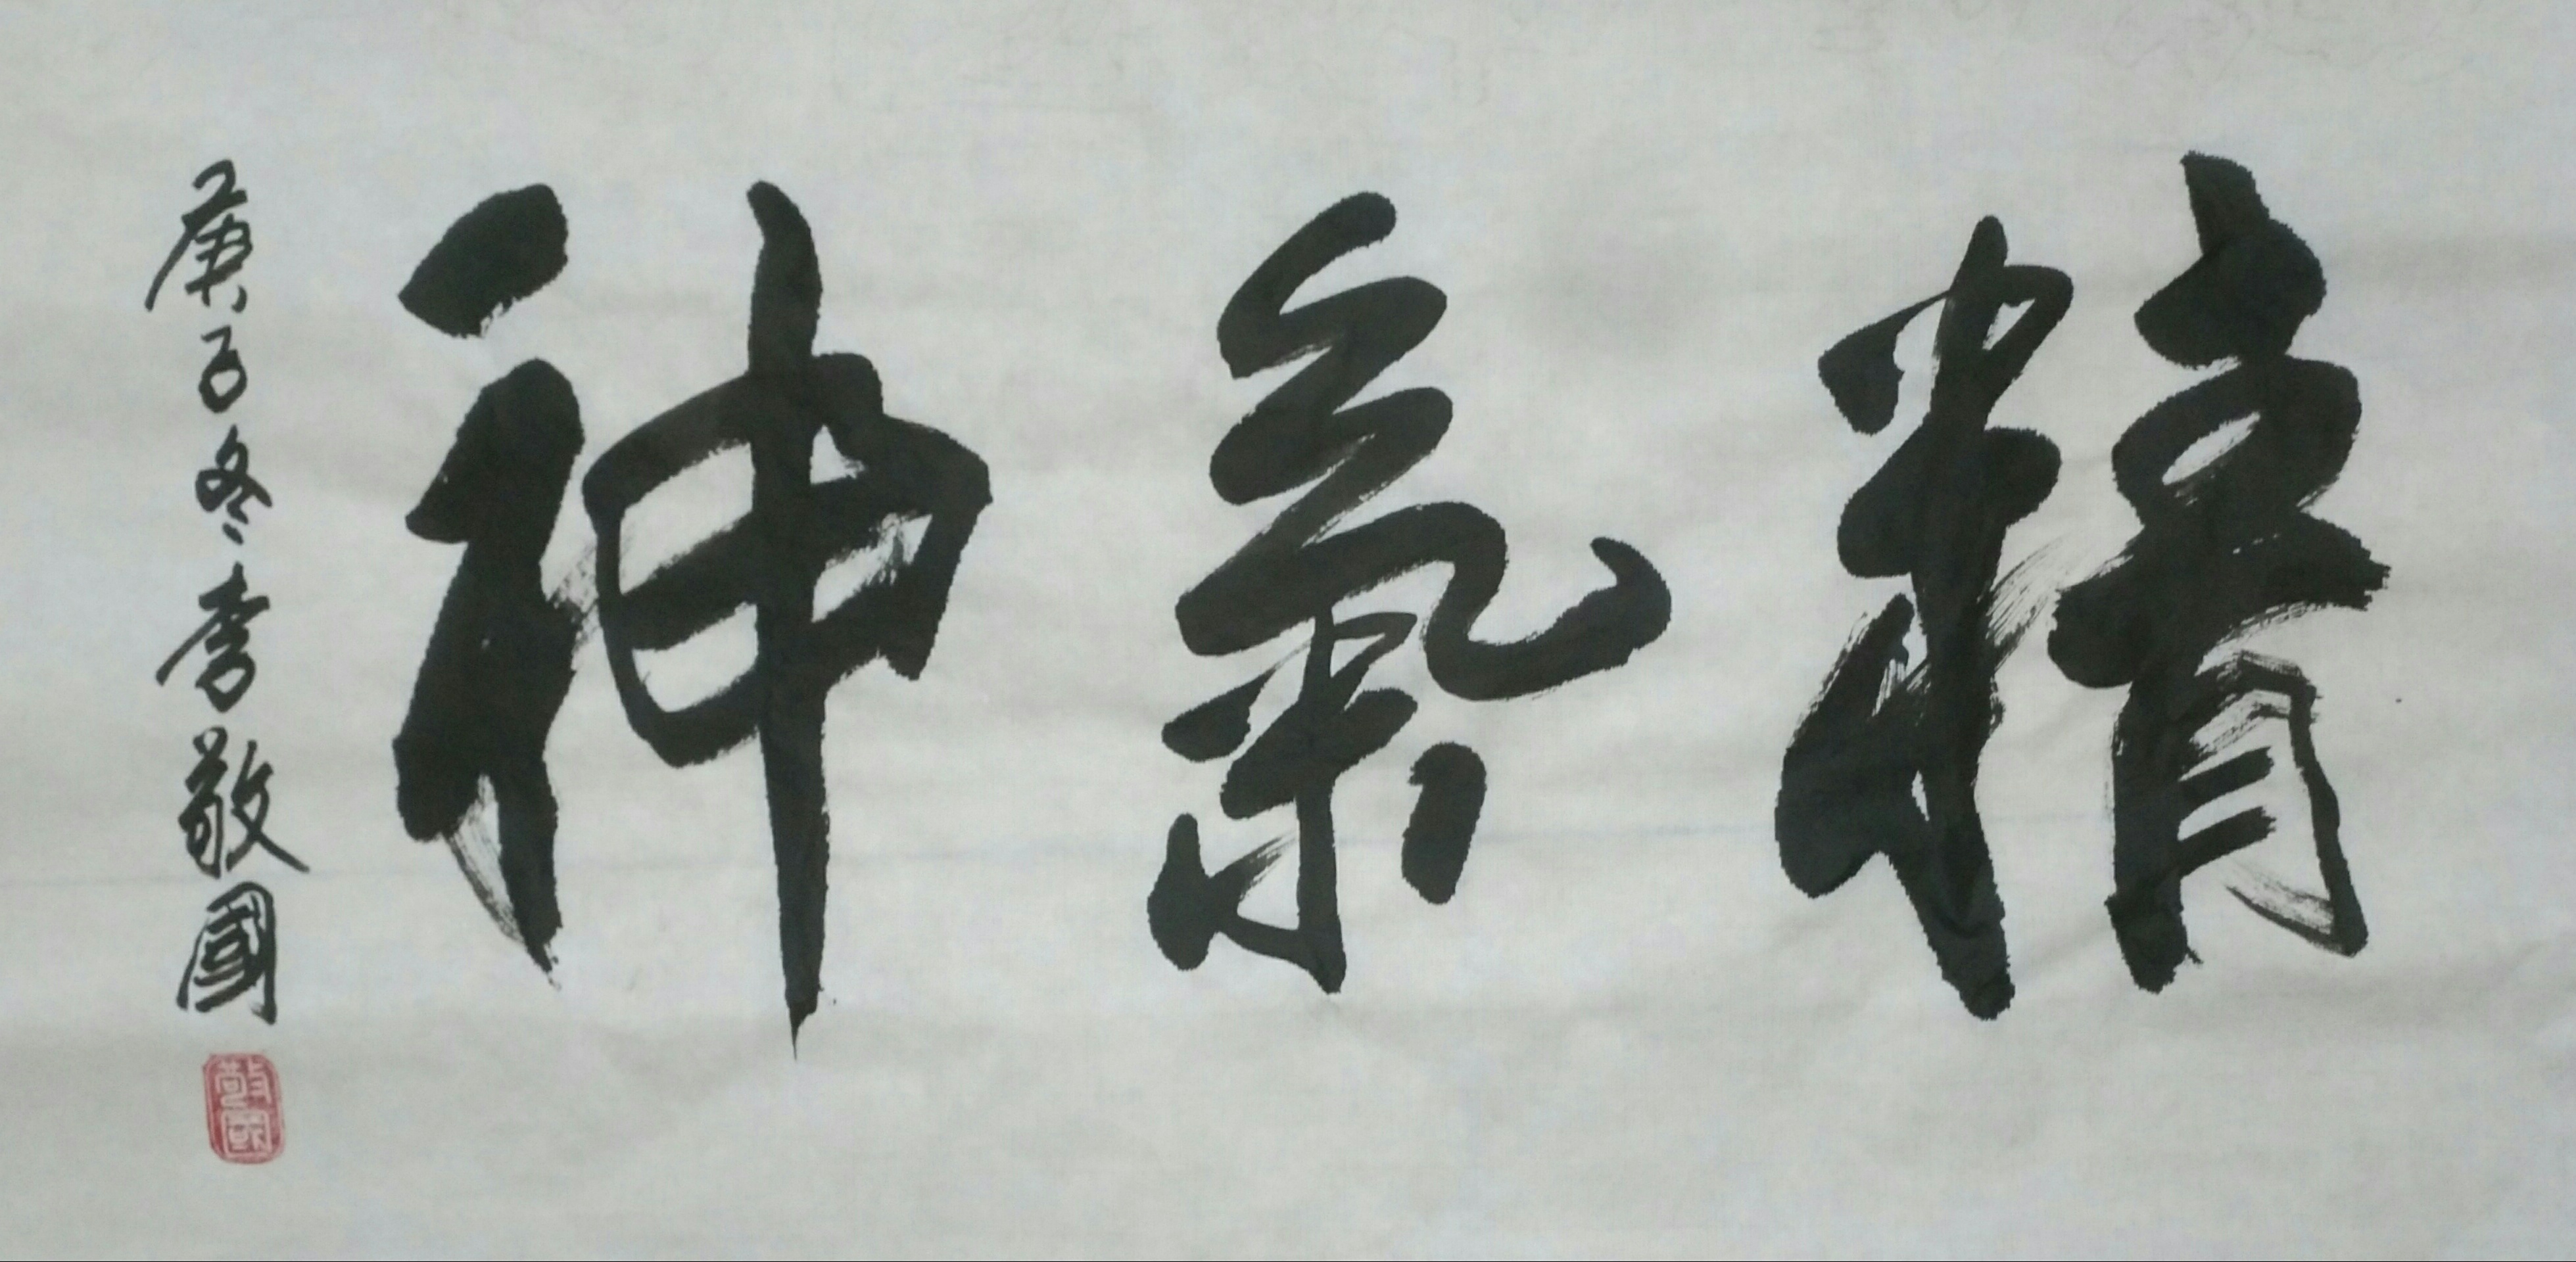 精氣神
庚子冬李敬國
敬國